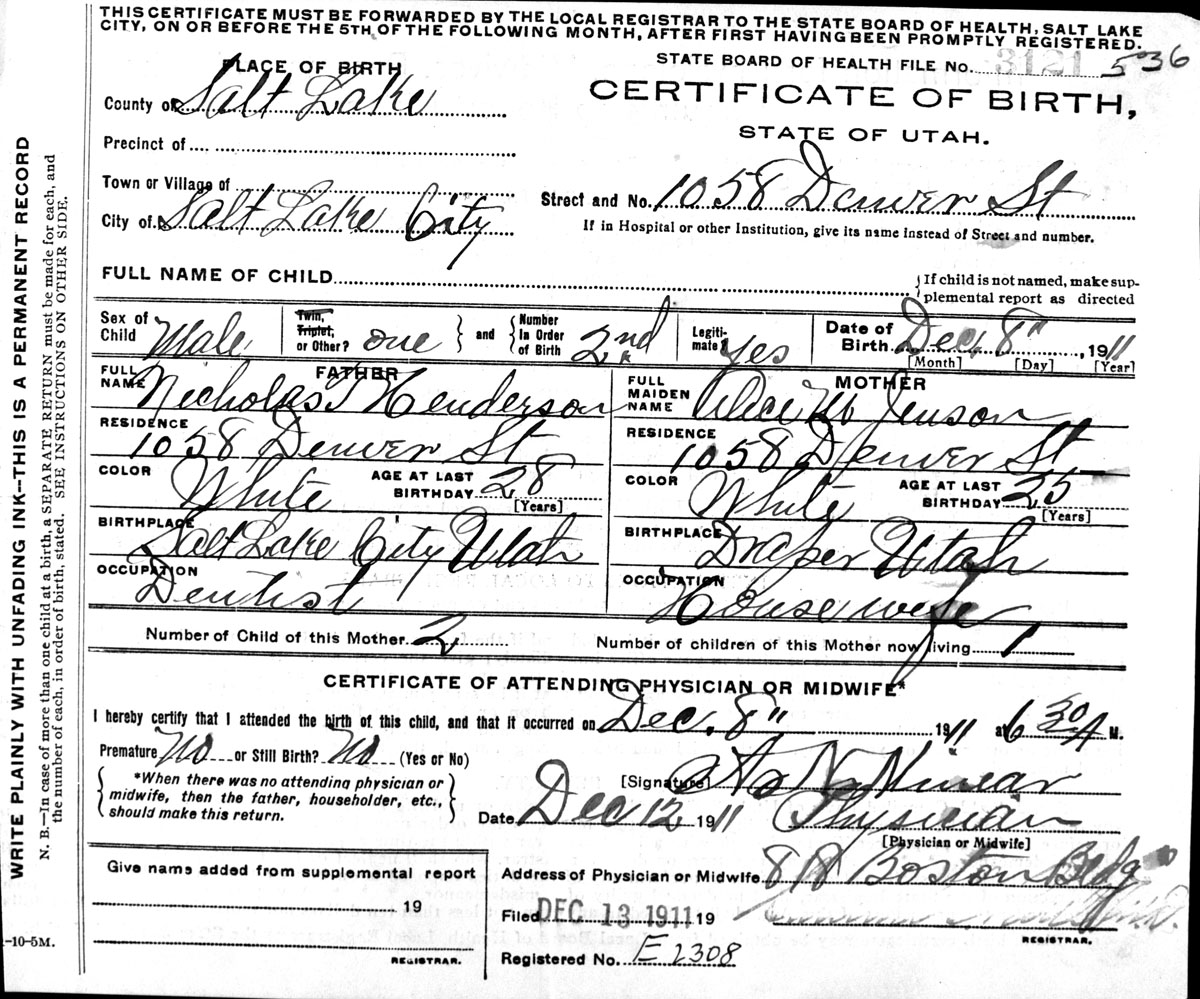 THIS CERTIFICATE MUST BE FORWARDED BY THE LOCAL REGISTRAR TO THE STATE BOARD OF HEALTH, SALT LAKE
CITY, ON OR BEFORE THE 5TH OF THE FOLLOWING MONTH, AFTER FIRST HAVING BEEN PROMPTLY REGISTERED.
STATE BOARD OF HEALTH FILE No. 3121 536
PLACE OF BIRTH
CERTIFICATE OF BIRTH,
County of Salt Lake
STATE OF UTAH.
Precinct of
Town or Village of
Street and No. 1058 Denver St
City of Salt Lake City
If in Hospital or other Institution, give its name instead of Street and number.
FULL NAME OF CHILD
If child is not named, make sup-
plemental report as directed
Sex of Child Male
Twin, Triplet, or Other? one
and Number In Order of Birth 2nd
Legiti- mate? Yes
Date of Birth Dec. 8" 1911
[Month] [Day] [Year]
FATHER
FULL NAME Nicholas T Henderson
RESIDENCE 1058 Denver St
COLOR White AGE AT LAST BIRTHDAY 28
[Years]
BIRTHPLACE Salt Lake City Utah
OCCUPATION Dentist
MOTHER
FULL MAIDEN NAME Alice M Jenson
RESIDENCE 1058 Denver St
COLOR White AGE AT LAST BIRTHDAY 25
[Years]
BIRTHPLACE Draper Utah
OCCUPATION Housewife
Number of Child of this Mother 2 Number of children of this Mother now living 1
CERTIFICATE OF ATTENDING PHYSICIAN OR MIDWIFE*
I hereby certify that I attended the birth of this child, and that it occurred on Dec. 8" 1911 at 6 30 A M.
Premature No or Still Birth? No (Yes or No)
*When there was no attending physician or
midwife, then the father, householder, etc.,
should make this return.
[Signature]
Date Dec 12 1911 Physician
[Physician or Midwife]
Address of Physician or Midwife 818 Boston Bldg
Filed DEC 13 1911 19
REGISTRAR.
Registered No. E 2308
Give name added from supplemental report
19
REGISTRAR.
-10-5M.
WRITE PLAINLY WITH UNFADING INK—THIS IS A PERMANENT RECORD
N. B.—In case of more than one child at a birth, a SEPARATE RETURN must be made for each, and
the number of each, in order of birth, stated. SEE INSTRUCTIONS ON OTHER SIDE.